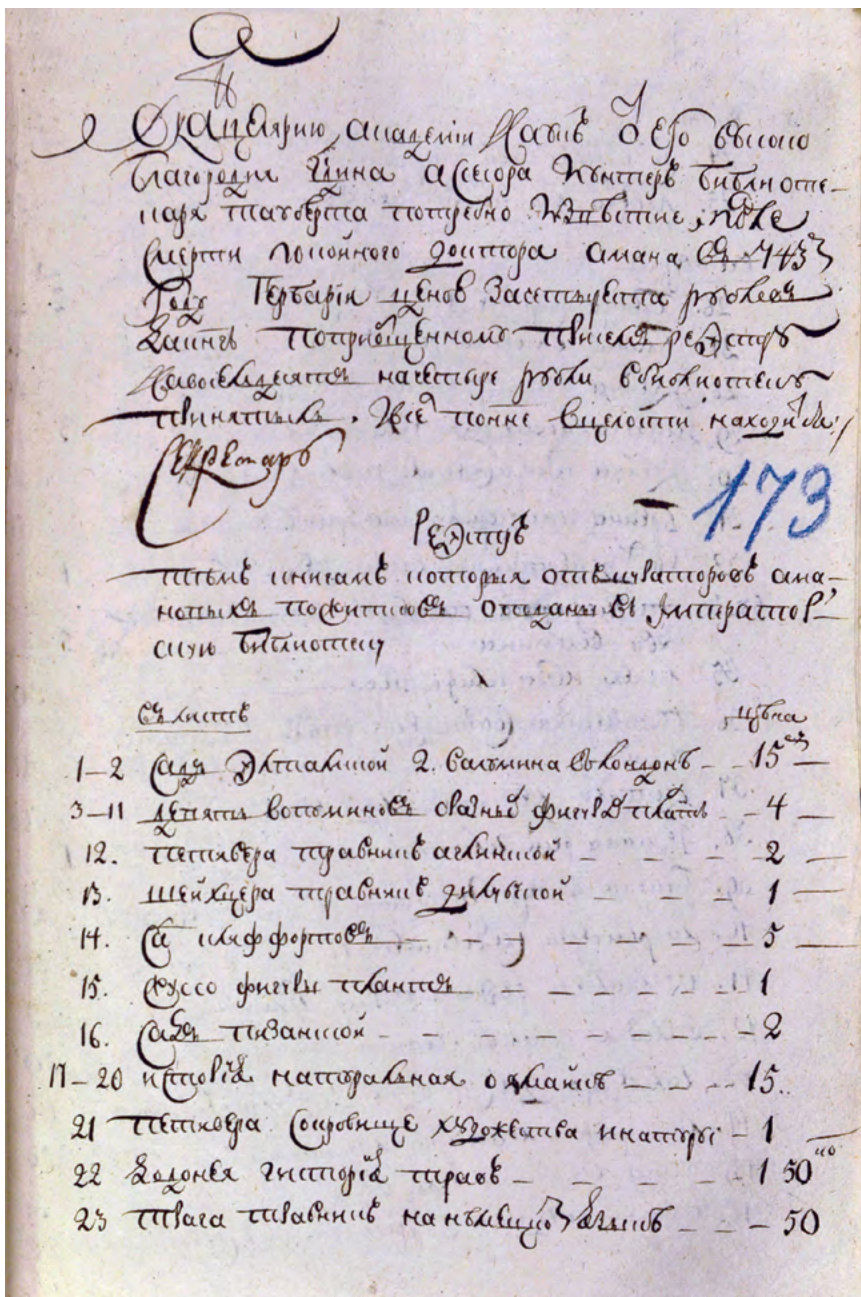 В канцелярию академии Наукъ от его высоко
благородия Гдина асессора Iунтеръ библиоте-
каря тауберта потребно известие, после
смерти покойного доктора амана въ 743м
году гербарiи ценою за сто рублевъ
книгъ по приобщенному при семъ реэстру
на восемдесятъ на четыре рубли в библиотеку
принятыхъ. И все по нне в целости находится
Секретарь
173
Реэстръ
темъ книгамъ которыя от кураторовъ ама-
новыхъ пожитковъ отданы въ Император-
скую библиотеку
въ листъ цѣна
1–2 садъ Элтамской 2. валумина в Лондонъ – – 15 –
3–11 девять волюминовъ разныхъ фигуръ плантъ – 4 –
12. петивера травникъ аглинской – – – – 2 –
13. шейхцера травникъ – – – – 1 –
14. садъ клиффортовъ – – – – – 5 –
15. фигуры плантъ – – – – – 1
16. садъ пизанской – – – – – – – – 2
17–20 исторiя натуральная о – – – 15.
21 петивера сокровище художества и натуры – 1 –
22 гисторiя травъ – – – – – 1 50 ко
23 травникъ на немецкомъ языкѣ – – – – 50